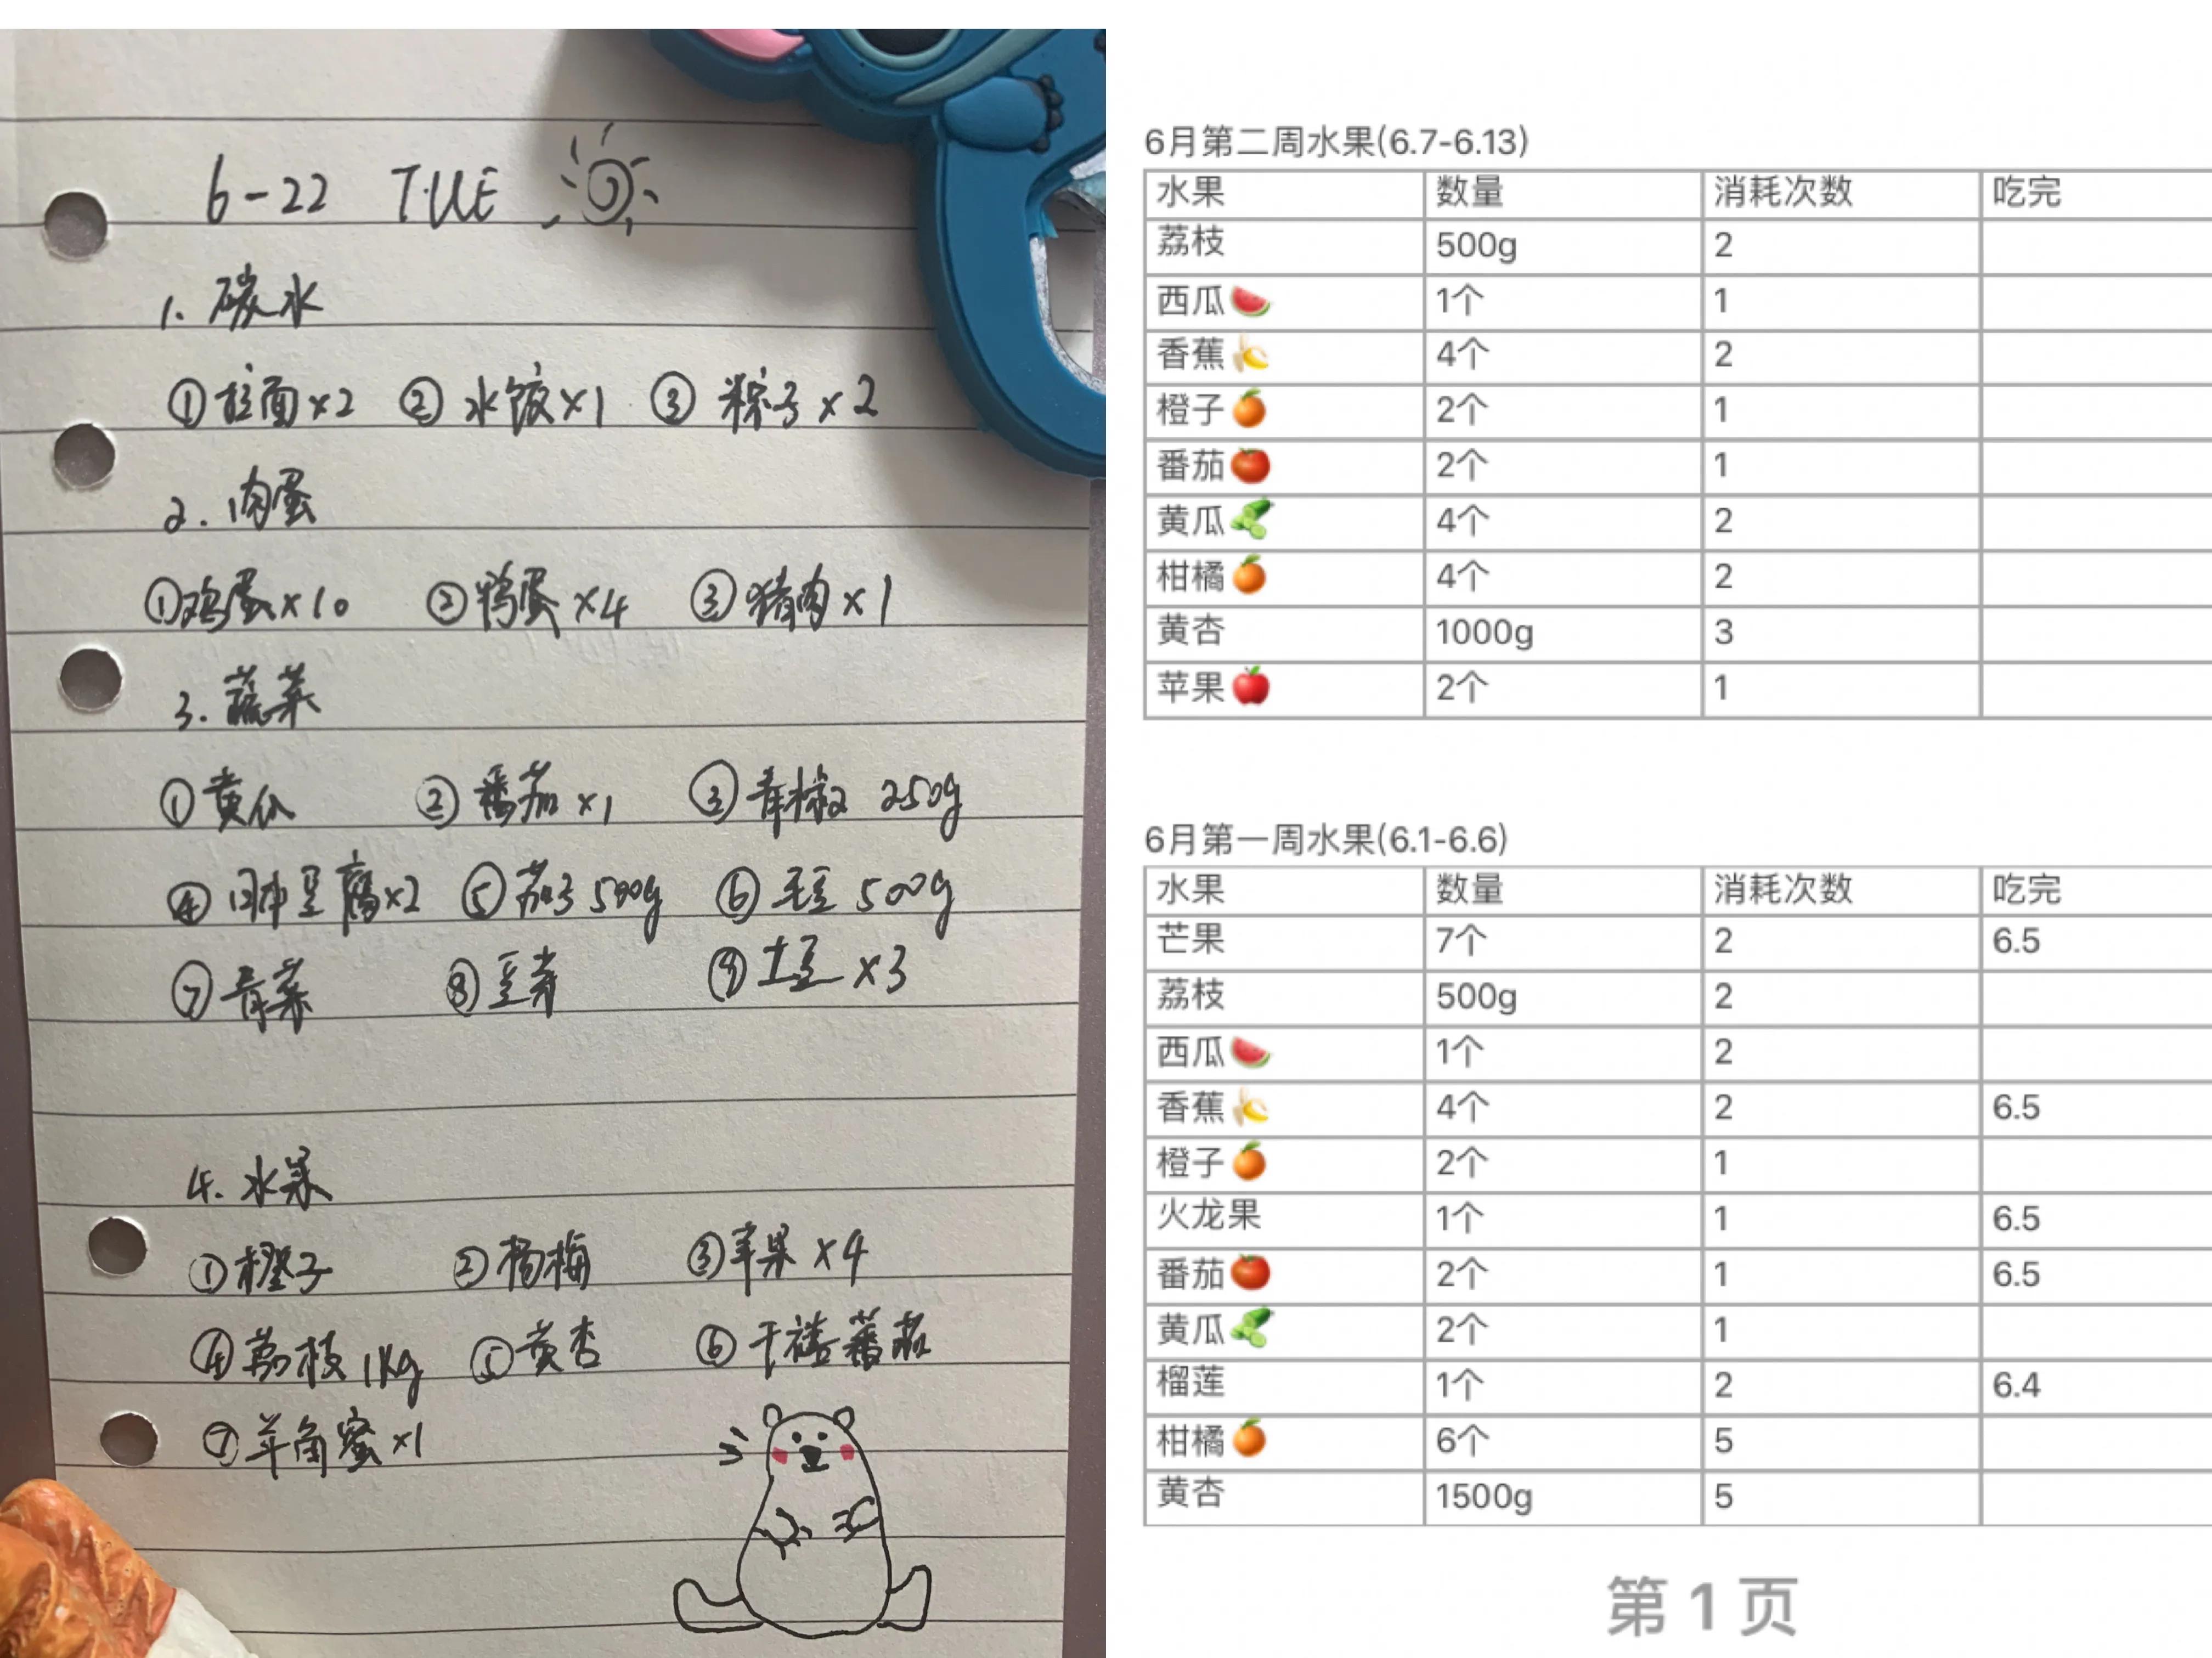 6-22 TUE
1. 碳水
①拉面×2 ②水饺×1 ③粽子×2
2. 肉蛋
①鸡蛋×10 ②鸭蛋×4 ③猪肉×1
3. 蔬菜
①黄瓜 ②番茄×1 ③青椒 250g
④日本豆腐×2 ⑤茄子500g ⑥毛豆 500g
⑦青菜 ⑧豆芽 ⑨土豆×3
4. 水果
①橙子 ②杨梅 ③苹果×4
④荔枝1kg ⑤黄杏 ⑥千禧番茄
⑦羊角蜜×1
6月第二周水果(6.7-6.13)
水果 数量 消耗次数 吃完
荔枝 500g 2
西瓜🍉 1个 1
香蕉🍌 4个 2
橙子🍊 2个 1
番茄🍅 2个 1
黄瓜🥒 4个 2
柑橘🍊 4个 2
黄杏 1000g 3
苹果🍎 2个 1
6月第一周水果(6.1-6.6)
水果 数量 消耗次数 吃完
芒果 7个 2 6.5
荔枝 500g 2
西瓜🍉 1个 2
香蕉🍌 4个 2 6.5
橙子🍊 2个 1
火龙果 1个 1 6.5
番茄🍅 2个 1 6.5
黄瓜🥒 2个 1
榴莲 1个 2 6.4
柑橘🍊 6个 5
黄杏 1500g 5
第 1 页